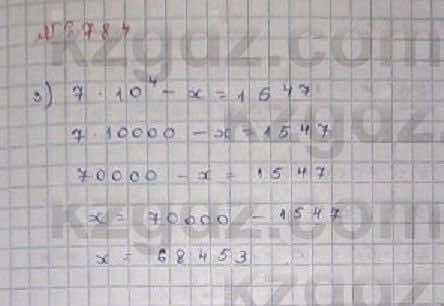 № 784
3) 7 · 10⁴ - x = 1547
7 · 10000 - x = 1547
70000 - x = 1547
x = 70000 - 1547
x = 68453
kzgdz.com